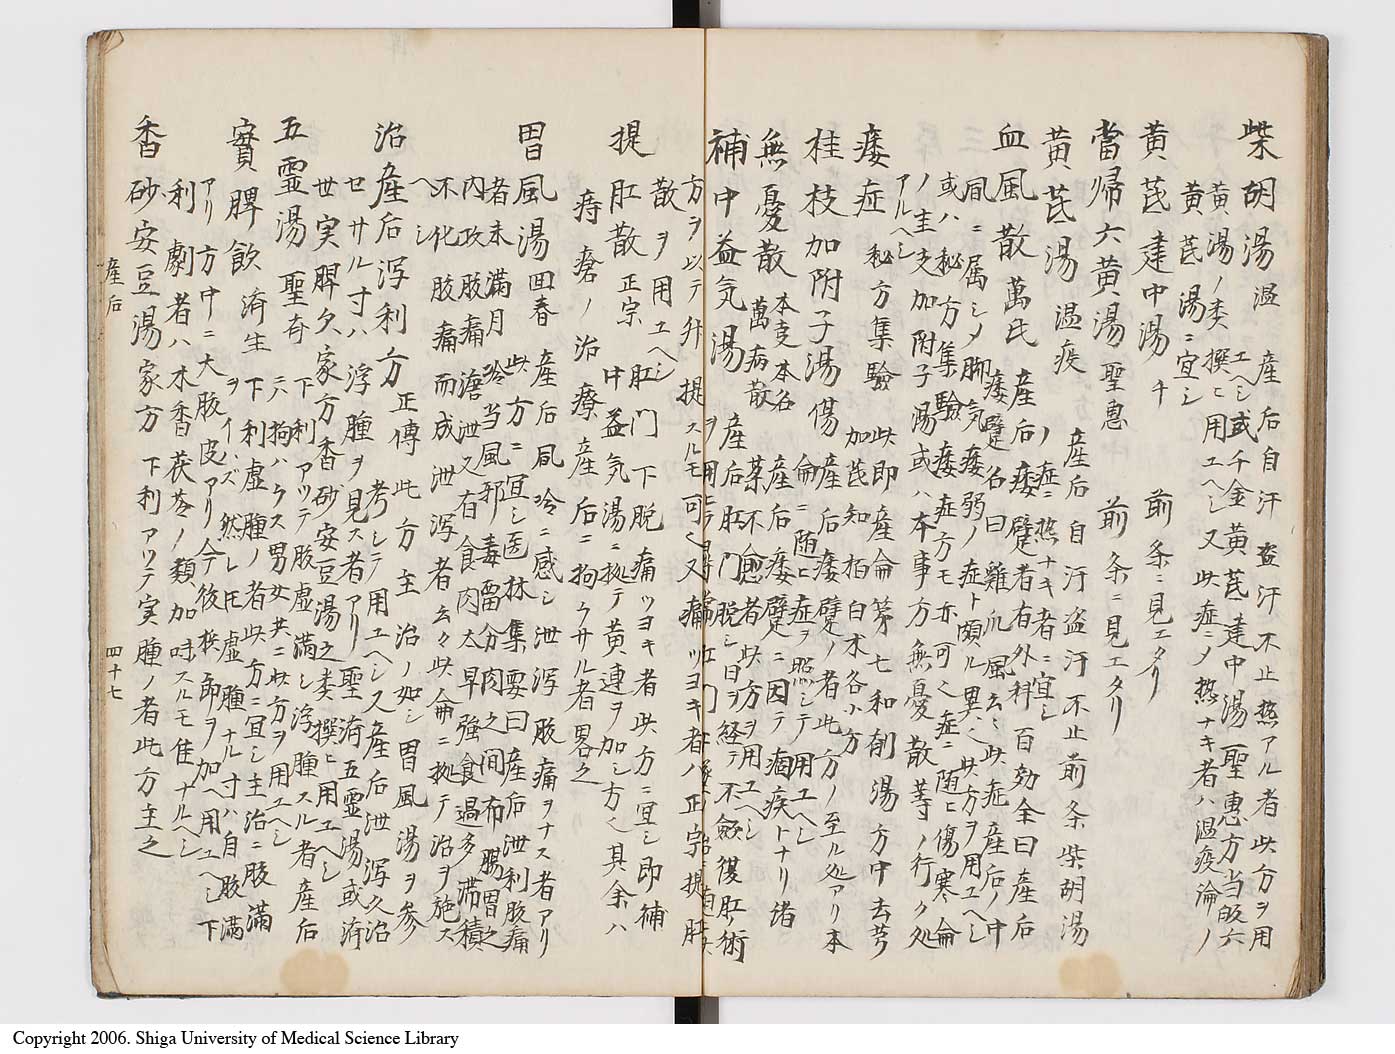 柴胡湯 温 産后自汗盗汗不止熱アル者此方ヲ用
エヘシ或千金黄芪建中湯聖惠方当皈六
黄湯ノ类撰ヒ用エヘシ又此症ニメ熱ナキ者ハ温疫論ノ
黄芪湯ニ宜シ
黄芪建中湯 千 前条ニ見エタリ
當帰六黄湯 聖惠 前条ニ見エタリ
黄芪湯 温疫 産后自汗盗汗不止前条柴胡湯
ノ症ニ熱ナキ者ニ宜シ
血風散 萬氏 産后痿躄者有外科百効全曰産后
痿躄名曰雞爪風云々此症産后ノ中
風ニ属シメ脚気痿弱ノ症ト頗ル異也此方ヲ用エヘシ
或ハ秘方集驗痿症方モ亦可也症ニ随ヒ傷寒侖
ノ圭支加附子湯或ハ本事方無憂散等ノ行ク処
アルヘシ
痿症 秘方集驗 此即産侖第七和剤湯方中去芎
加芪知柏白朮各小方
桂枝加附子湯 傷侖 産后痿躄ノ者此方ノ至ル処アリ本
侖ニ随ヒ症ヲ照シテ用エヘシ
無憂散 本支本名萬病散 産后痿躄ニ因テ痼疾トナリ諸
薬不愈者此方ヲ用エヘシ
補中益気湯 産后肛門脱シ日ヲ経テ不斂復肛ノ術
方ヲ以テ升提スルモ可也又痛ツヨキ者ハ正宗提肛
散ヲ用エヘシ
提肛散 正宗 肛門下脱痛ツヨキ者此方ニ宜シ即補
中益気湯ニ拠テ黄連ヲ加シ方也其余ハ
痔瘡ノ治療産后ニ拘ラサル者畧之
胃風湯 回春 産后風冷ニ感シ泄瀉腹痛ヲナス者アリ
此方ニ宜シ医林集要曰産后泄利腹痛
者未滿月冷当風邪毒留分肉之间布腸胃之
内攻腹痛溏泄又有食肉太早強食過多滞積
不化腹痛而成泄瀉者云々此侖ニ拠テ治ヲ施ス
ヘシ
治産后瀉利方 正傳 此方主治ノ如シ胃風湯ヲ参
考シテ用エヘシ又産后泄瀉久治
セサル寸ハ浮腫ヲ見ス者アリ聖済五霊湯或済
世実脾久家方香砂安豆湯之类撰ヒ用エヘシ
五霊湯 聖奇 下利アツテ腹虚滿シ浮腫スル者産后
ニ拘ハラス男女共ニ此方ヲ用エヘシ
實脾飲 済生 下利虚腫ノ者此方ニ宜シ主治ニ腹滿
ヲイハズ然レ圧虚腫ナル寸ハ自腹滿
アリ方中ニ大腹皮アリ今後梹郎ヲ加ヘ用エヘシ下
利劇者ハ木香茯苓ノ類加味スルモ佳ナルヘシ
香砂安豆湯 家方 下利アツテ実腫ノ者此方主之
産后 四十七
Copyright 2006. Shiga University of Medical Science Library